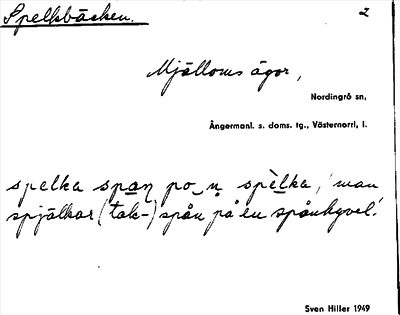 Spelkbäcken. 2
Mjälloms ägor,
Nordingrå sn,
Ångermanl. s. doms. tg., Västernorrl. l.
spelka span̥ po n̥ spèlka, 'man
spjälkar (tak-) spån på en spånhyvel'.
Sven Hiller 1949